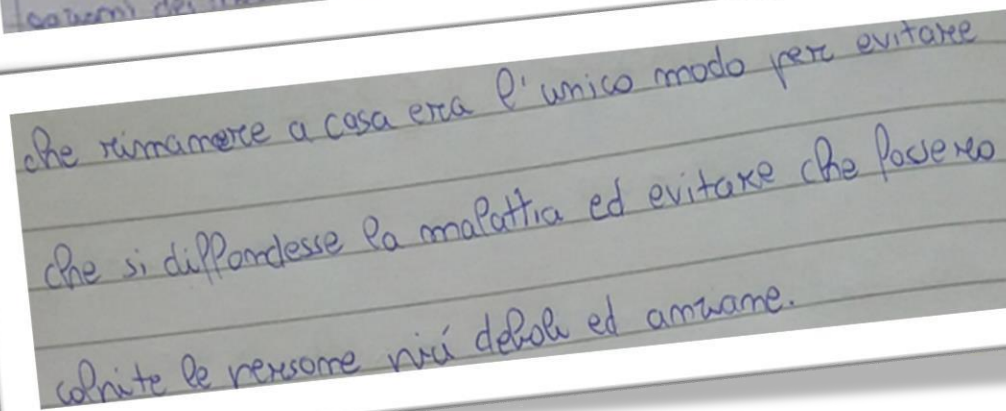 che rimanere a casa era l'unico modo per evitare
che si diffondesse la malattia ed evitare che fossero
colpite le persone più deboli ed anziane.